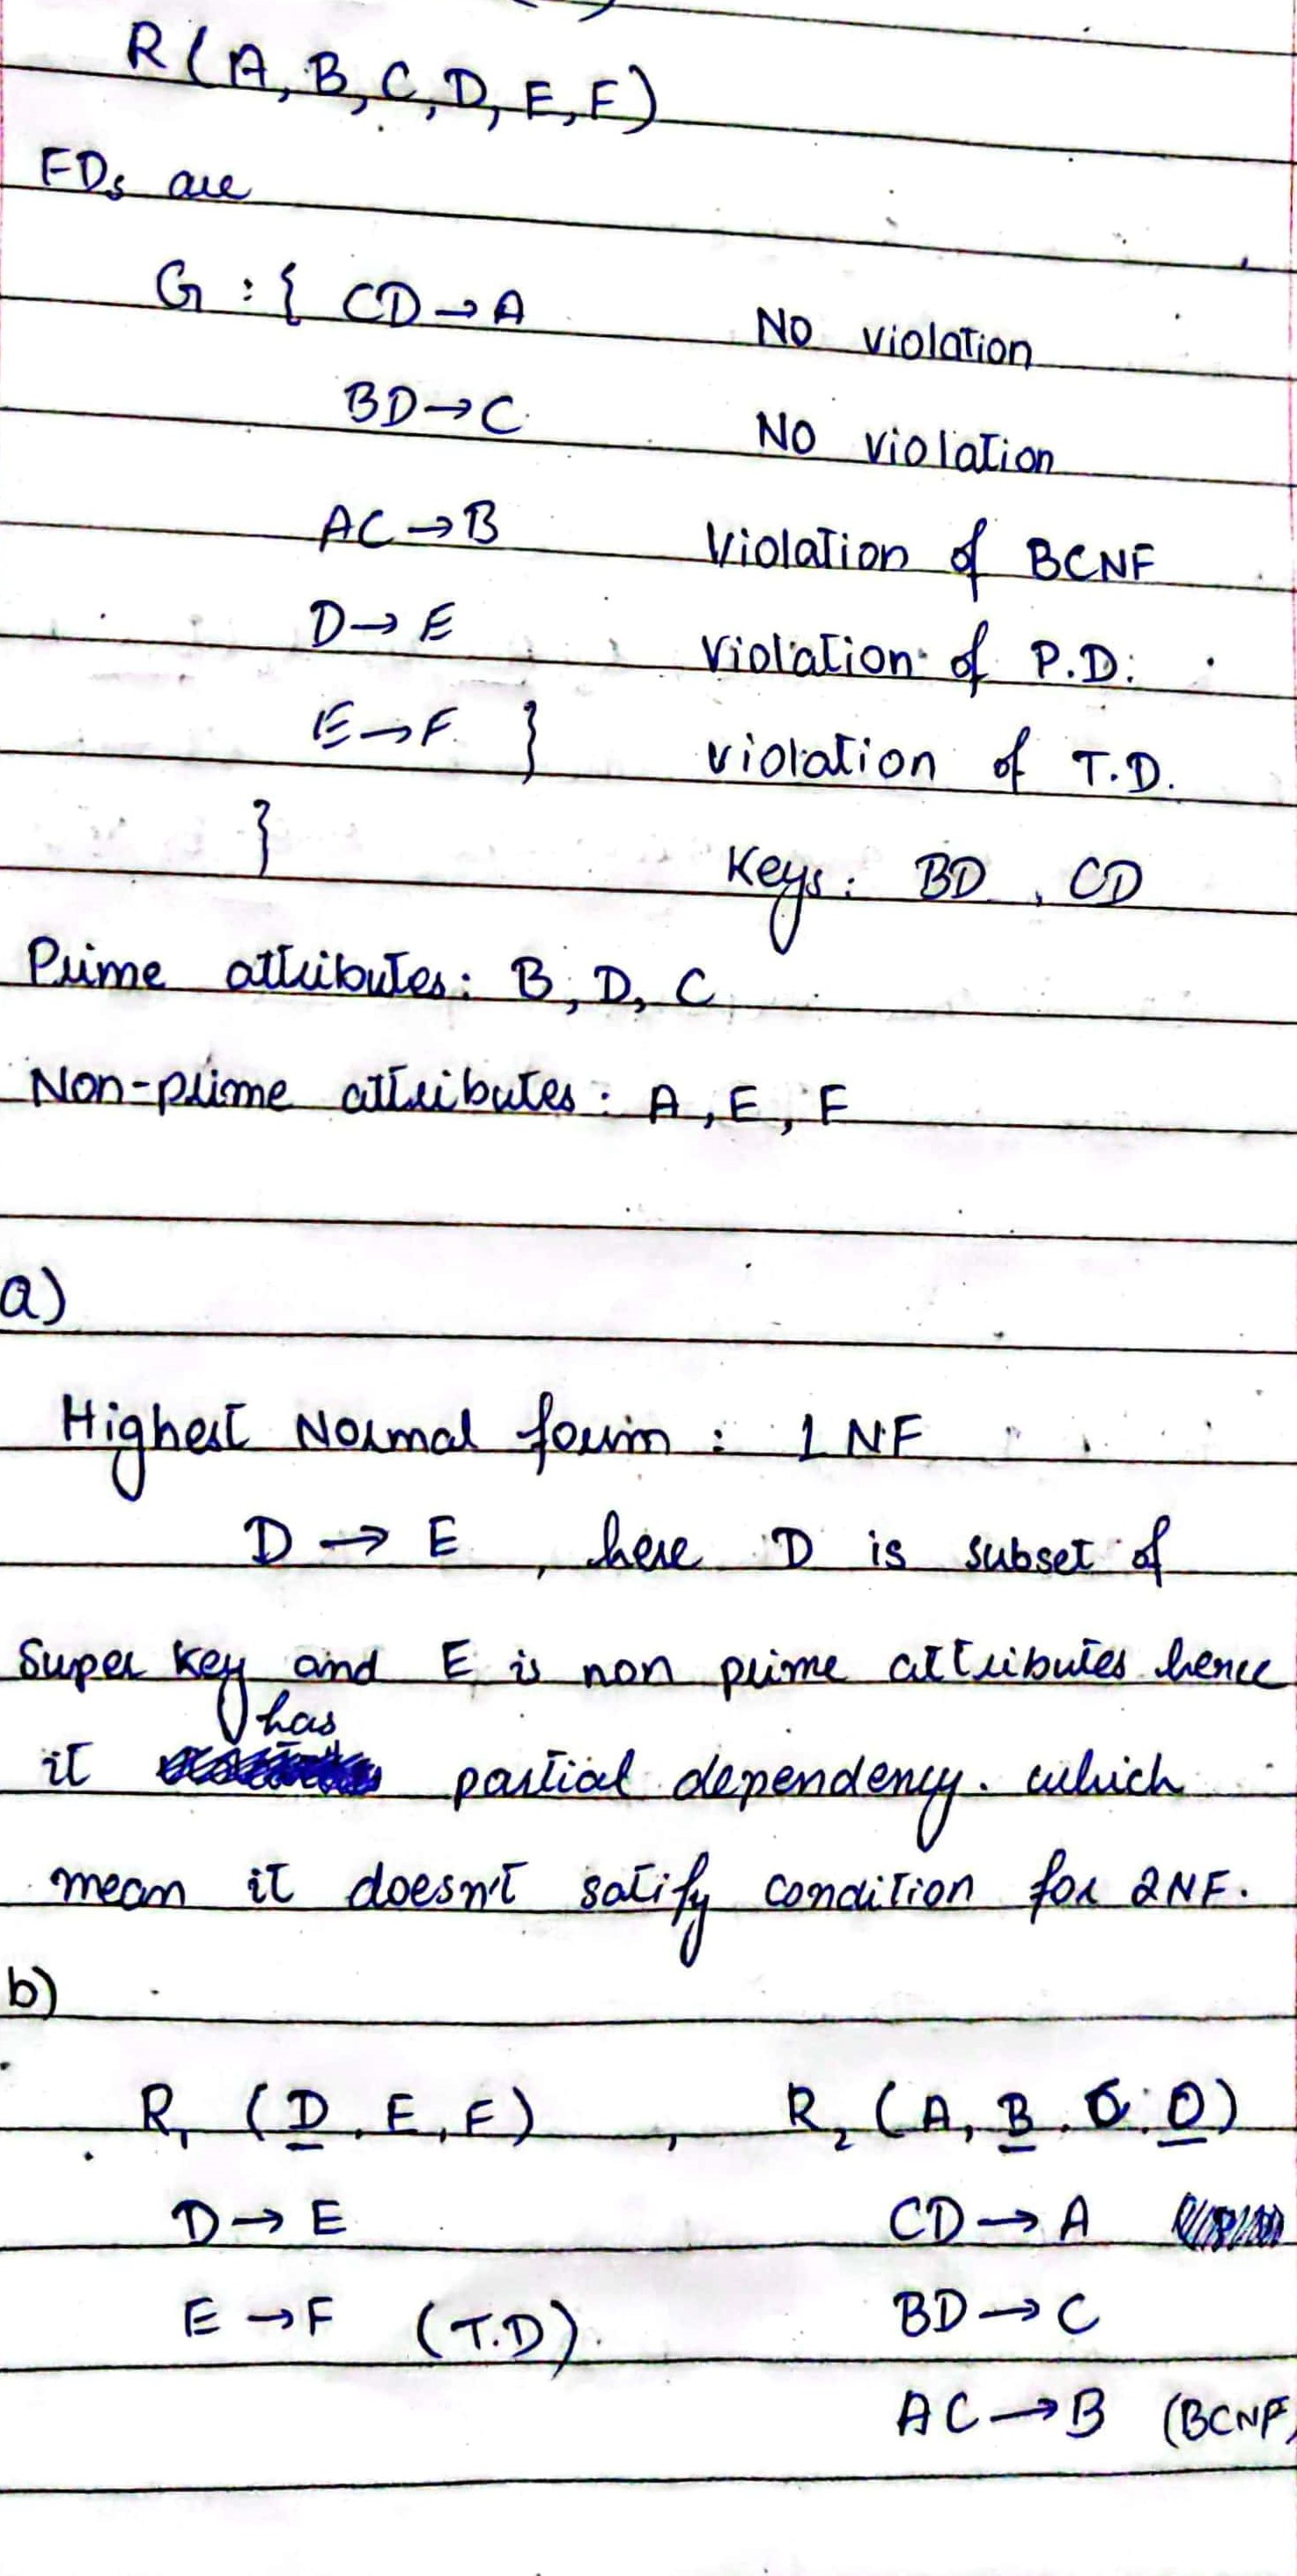 R(A, B, C, D, E, F)
FDs are
G : { CD → A No violation
BD → C No violation
AC → B Violation of BCNF
D → E Violation of P.D.
E → F } violation of T.D.
} Keys: BD, CD
Prime attributes: B, D, C
Non-prime attributes: A, E, F
a)
Highest Normal form : 1NF
D → E, here D is subset of
Super key and E is non prime attributes hence
it has partial dependency. which
mean it doesn't satify condition for 2NF.
b)
R₁ (D, E, F) , R₂ (A, B, C, D)
D → E CD → A
E → F (T.D). BD → C
AC → B (BCNF)